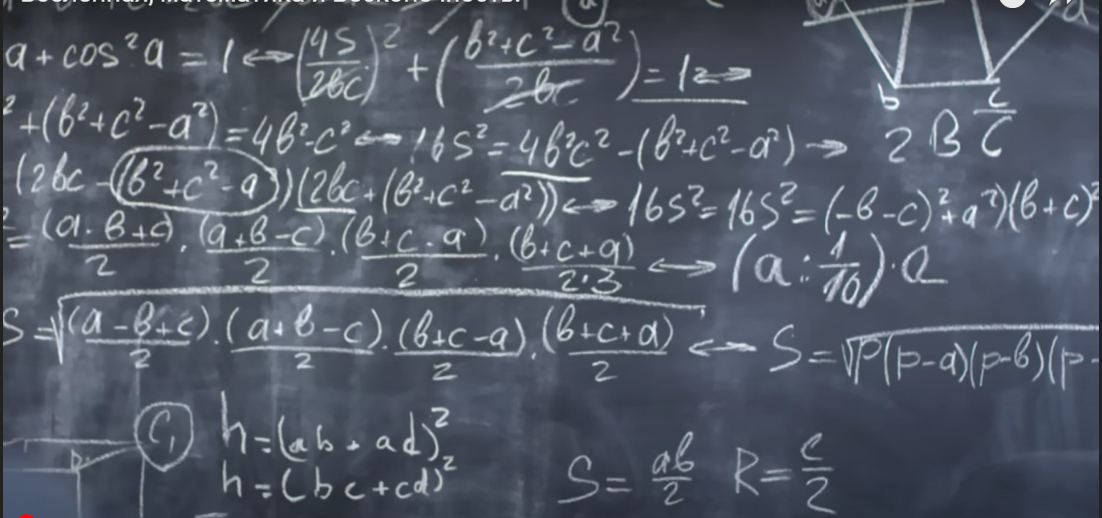 a + cos²a = 1 ↔ (4S/2bc)² + (b²+c²-a²/2bc) = 1 ↔
² + (b²+c²-a²) = 4b²-c² ↔ 16S² = 4b²c² - (b²+c²-a²) → 2 B C̅
(2bc - (b²+c²-a))(2bc + (b²+c²-a²)) ↔ 16S² = 16S² = (-b-c)²+a²)(b+c)²
= (a·b+c)/2 · (a+b-c)/2 · (b+c-a)/2 · (b+c+a)/2·3 ↔ (a : 1/10) · a
S = √(a-b+c)/2 · (a+b-c)/2 · (b+c-a)/2 · (b+c+a)/2 ↔ S = √P(p-a)(p-b)(p-
b c
a
C₁
h = (ab + ad)²
h = (bc + cd)²
S = ab/2 R = c/2